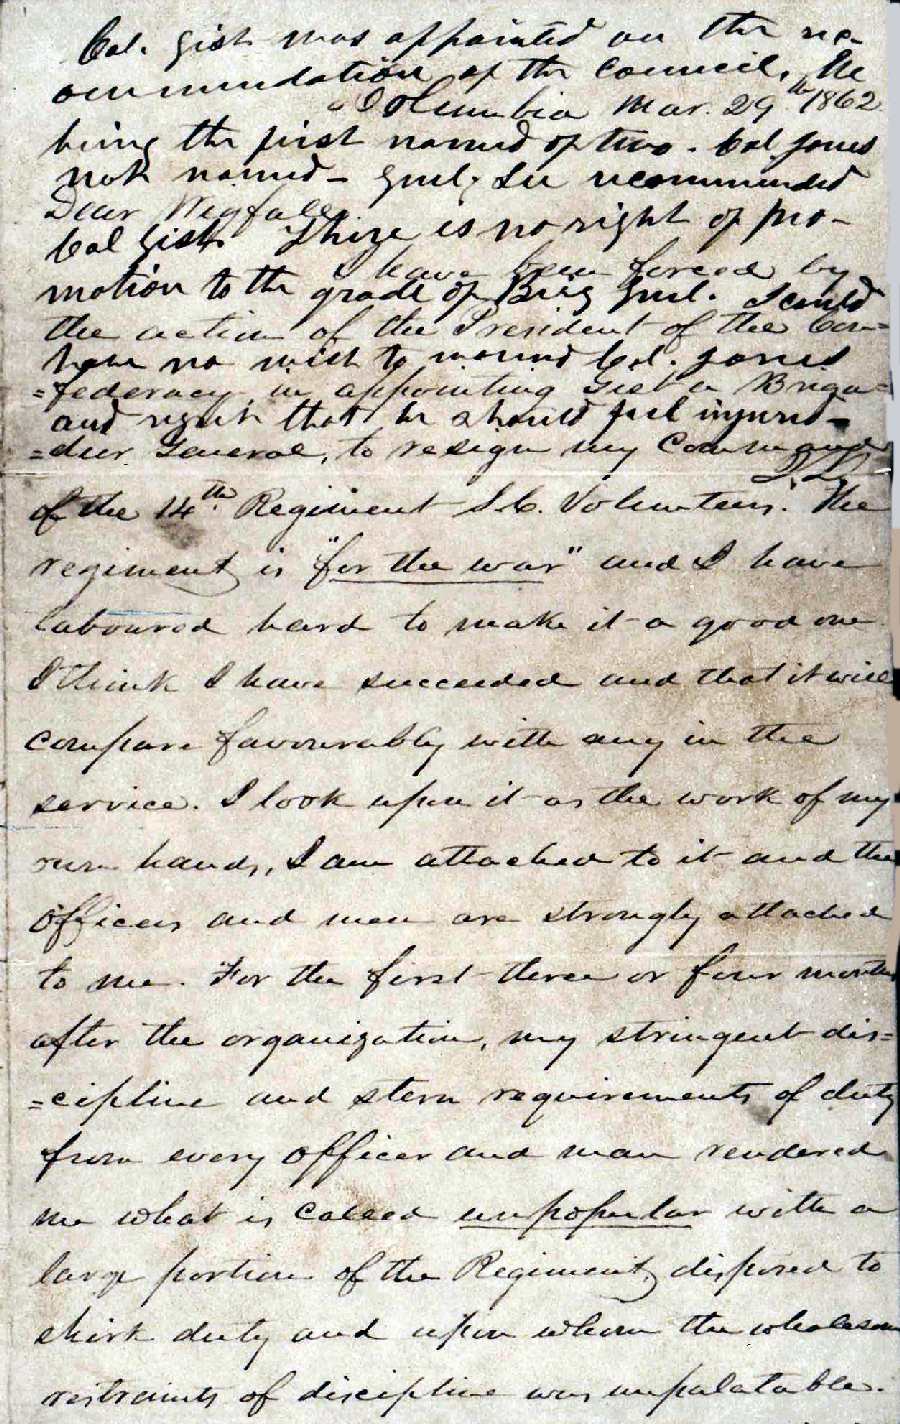 Col. Gist was appointed on the rec-
ommendation of the Council, He
Columbia Mar. 29th 1862
being the first named of two. Col Jones
not named - Genl. Lee recommended
Dear Wigfall,
Col Gist. There is no right of pro-
I have been forced by
motion to the grade of Brig Genl. I could
the action of the President of the Con=
have no wish to wound Col. Jones
=federacy, in appointing Gist a Briga=
and regret that he should feel injured-
=dier General, to resign my Command
of the 14th. Regiment S.C. Volunteers. The
regiment is "for the war" and I have
laboured hard to make it a good one.
I think I have succeeded and that it will
compare favourably with any in the
service. I look upon it as the work of my
own hands, I am attached to it and the
officers and men are strongly attached
to me. For the first three or four months
after the organization, my stringent dis=
=cipline and stern requirements of duty
from every officer and man rendered
me what is called unpopular with a
large portion of the Regiment, disposed to
shirk duty and upon whom the wholesome
restraints of discipline was unpalatable.